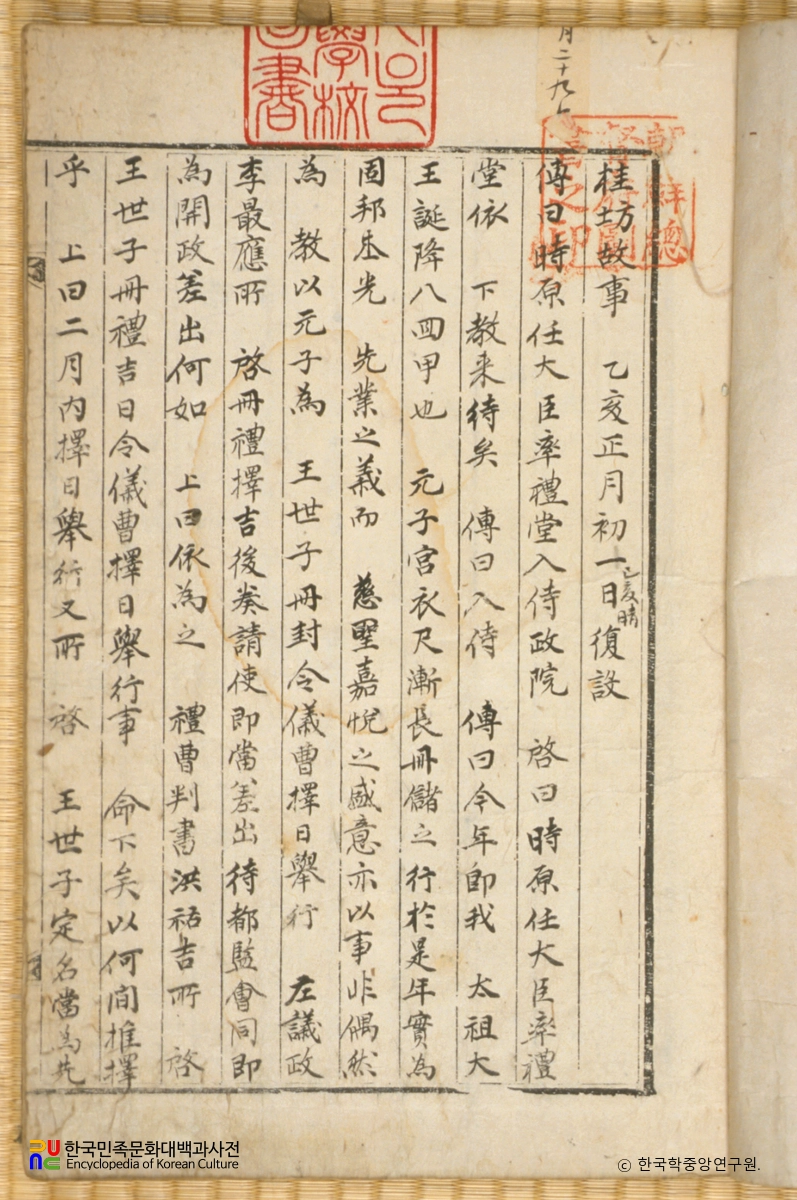 月二十九日
桂坊故事 乙亥正月初一日己亥晴復設
傳曰時原任大臣率禮堂入侍政院 啓曰時原任大臣率禮
堂依 下教来待矣 傳曰入侍 傳曰今年卽我 太祖大
王誕降八回甲也 元子宮衣尺漸長冊儲之行於是年實為
固邦本光 先業之義而 慈聖嘉悅之盛意亦以事非偶然
為 教以元子為 王世子冊封令儀曹擇日擧行 左議政
李最應所 啓冊禮擇吉後奏請使卽當差出待都監會同卽
為開政差出何如 上曰依為之 禮曹判書洪祐吉所 啓
王世子冊禮吉日令儀曹擇日擧行事 命下矣以何間推擇
乎 上曰二月內擇日擧行又所 啓 王世子定名當為先
한국민족문화대백과사전
Encyclopedia of Korean Culture
ⓒ 한국학중앙연구원.